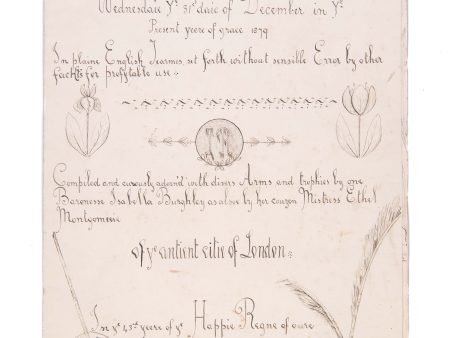 Wednesdaie Yᵉ 31ˢᵗ daie of December in Yᵉ
Present yeere of grace 1879
In plaine English Tearmes set forth without sensible Error by other
for profytable use
Compiled and curously adorn'd with divers Arms and trophies by one
Baronesse Isabella Burghley as alsoe by her couzen Mistress Ethel
Montgomerie
of yᵉ antient citie of London
In yᵉ 43ʳᵈ yeere of yᵉ Happie Regne of oure